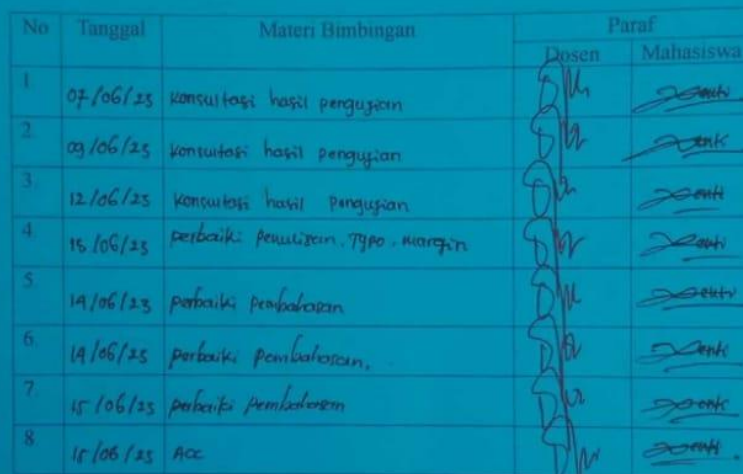 No Tanggal Materi Bimbingan Paraf
Dosen Mahasiswa
1. 07/06/23 Konsultasi hasil pengujian
2. 09/06/23 Konsultasi hasil pengujian
3. 12/06/23 Konsultasi hasil pengujian
4. 15/06/23 perbaiki penulisan. Typo. margin
5. 14/06/23 perbaiki pembahasan
6. 14/06/23 perbaiki pembahasan.
7. 15/06/23 perbaiki pembahasan
8. 15/06/23 Acc